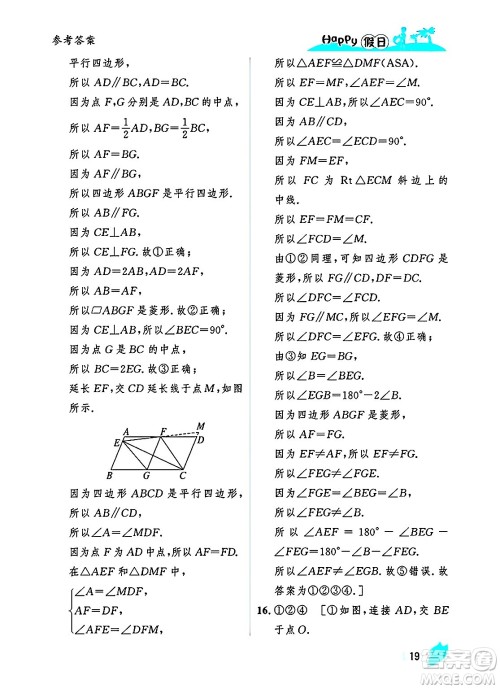 参考答案
Happy 假日
平行四边形,
所以 AD∥BC,AD=BC.
因为点 F,G 分别是 AD,BC 的中点,
所以 AF=1/2AD,BG=1/2BC.
所以 AF=BG.
因为 AD∥BC,
所以四边形 ABGF 是平行四边形.
所以 AB∥FG.
因为 CE⊥AB,
所以 CE⊥FG. 故①正确;
因为 AD=2AB,AD=2AF,
所以 AB=AF.
所以▱ABGF 是菱形. 故②正确;
因为 CE⊥AB,所以∠BEC=90°.
因为点 G 是 BC 的中点,
所以 BC=2EG. 故③正确;
延长 EF,交 CD 延长线于点 M,如图
所示.
A F M
E D
B G C
因为四边形 ABCD 是平行四边形,
所以 AB∥CD.
所以∠A=∠MDF.
因为 F 为 AD 中点,所以 AF=FD.
在△AEF 和△DMF 中,
∠A=∠MDF,
AF=DF,
∠AFE=∠DFM,
所以△AEF≌△DMF(ASA).
所以 EF=MF,∠AEF=∠M.
因为 CE⊥AB,所以∠AEC=90°.
因为 AB∥CD,
所以∠AEC=∠ECD=90°.
因为 FM=EF,
所以 FC 为 Rt△ECM 斜边上的
中线.
所以 EF=CF=FM.
所以∠FCD=∠M.
由①②同理,可知四边形 CDFG 是
菱形,所以 FG∥MC.
所以∠DFC=∠FCD=∠M.
因为 FG∥MC,所以∠M=∠EFG.
所以∠DFC=∠EFG. 故④正确;
由③可知 BG=EG.
所以∠BEG=∠B.
所以∠BGE=180°-2∠B.
因为四边形 ABGF 是菱形,
所以 AB=AF.
因为 EF≠AF,所以 EF≠FG.
所以∠FEG≠∠FGE.
所以∠FEG≠∠B.
所以∠AEF=180°-∠BEG-
∠FEG≠180°-2∠B.
所以∠AEF≠∠BGE. 故⑤错误. 故
答案为①②③④.]
16. ①②④ [①如图,连接 AD,交 BE
于点 O.
19